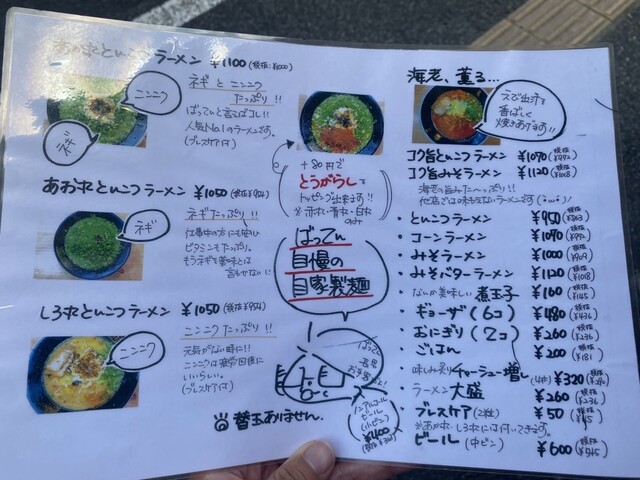 あか赤れとんこつラーメン ¥1100 (税抜:¥1000)
ニンニク
ネギ
ネギ と ニンニク
たっぷり!!
ばってんと言えばコレ!!
人気No.1のラーメンです。
(ブレスケア付)
あおれとんこつラーメン ¥1050 (税抜¥954)
ネギ
ネギたっぷり!!
仕事中の方にも安心
ビタミンもたっぷり。
もうネギを薬味とは
言わせない!!
しろれとんこつラーメン ¥1050 (税抜¥954)
ニンニク
ニンニクたっぷり!!
元気がない時に!!
ニンニクは疲労回復に
いいらしい。
(ブレスケア付)
替玉ありません。
+80円で
とうがらしを
トッピング出来ます!!
ばってん
自慢の
自家製麺
ノンアルコール
ビール
(小ビン)
¥400
海老、薫る...
えび出汁を
香ばしく
焼きあげます!!
コク旨とんこつラーメン ¥1070 (税抜¥972)
コク旨みそラーメン ¥1120 (税抜¥1018)
海老の旨みたーっぷり!!
他店では味わえないラーメンです
・とんこつラーメン ¥950 (税抜¥863)
・コーンラーメン ¥1070 (税抜¥972)
・みそラーメン ¥1000 (税抜¥909)
・みそバターラーメン ¥1120 (税抜¥1018)
・なんか美味しい 煮玉子 ¥160 (税抜¥145)
・ギョーザ(6コ) ¥480 (税抜¥436)
・おにぎり(2コ) ¥260 (税抜¥236)
・ごはん ¥200 (税抜¥181)
・味しみ炙りチャーシュー増し(4枚) ¥320 (税抜¥290)
・ラーメン 大盛 ¥260 (税抜¥236)
・ブレスケア(2粒) ¥50 (税抜¥45)
※あかれ・しろれには付いてきます。
ビール(中ビン) ¥600 (税抜¥545)